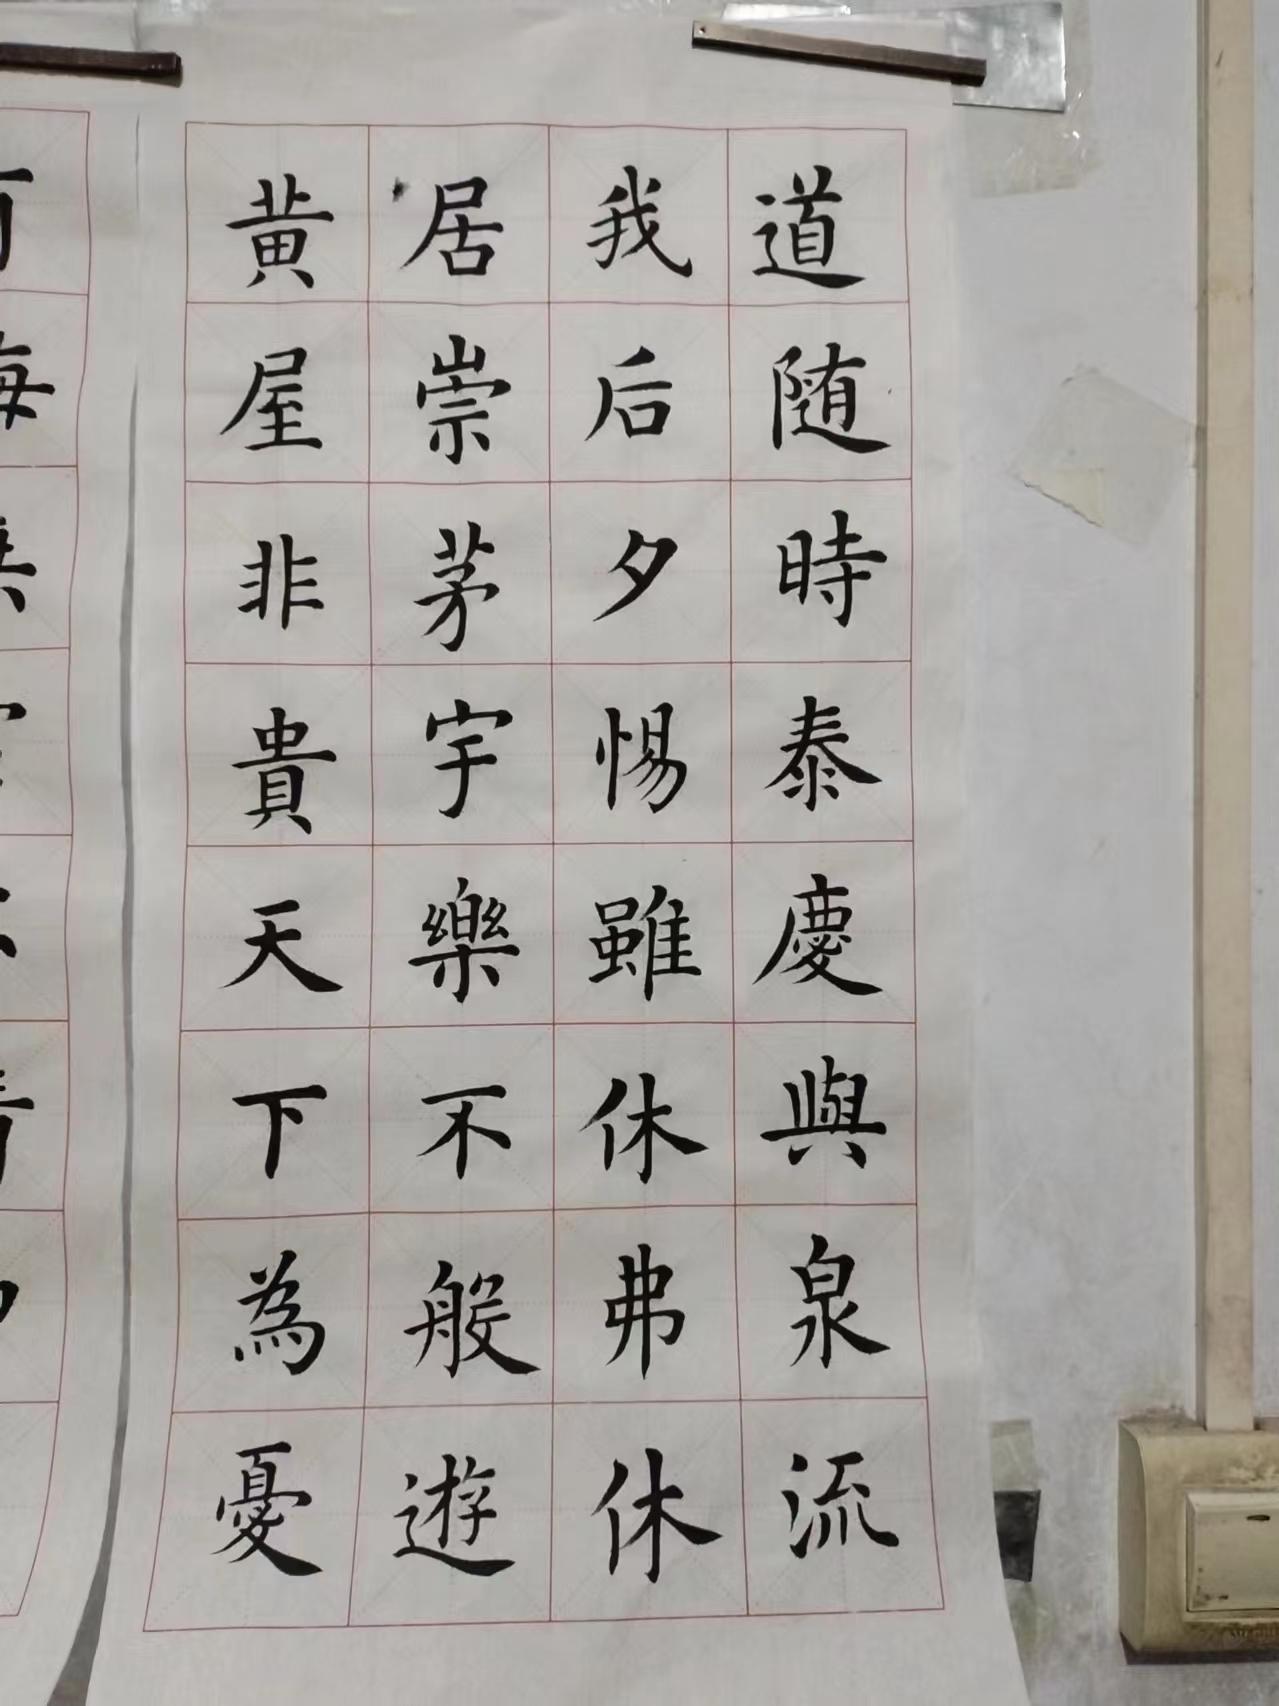 道随時泰慶與泉流
我后夕惕雖休弗休
居崇茅宇樂不般遊
黄屋非貴天下為憂